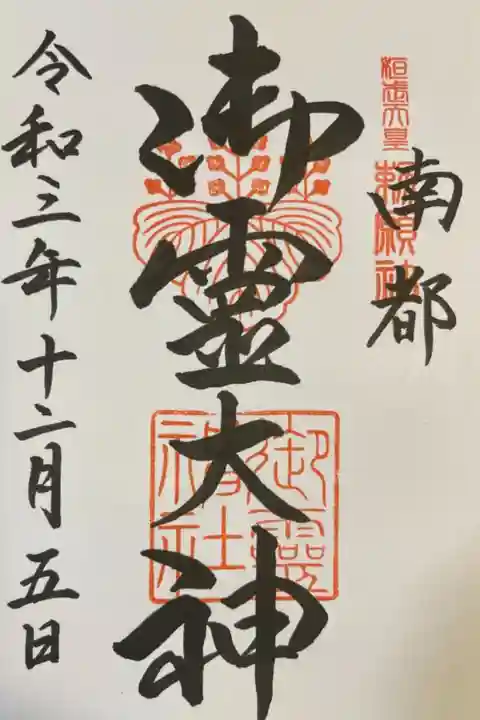 桓武天皇勅願社
南都
御霊大神
御靈神社
令和三年十二月五日